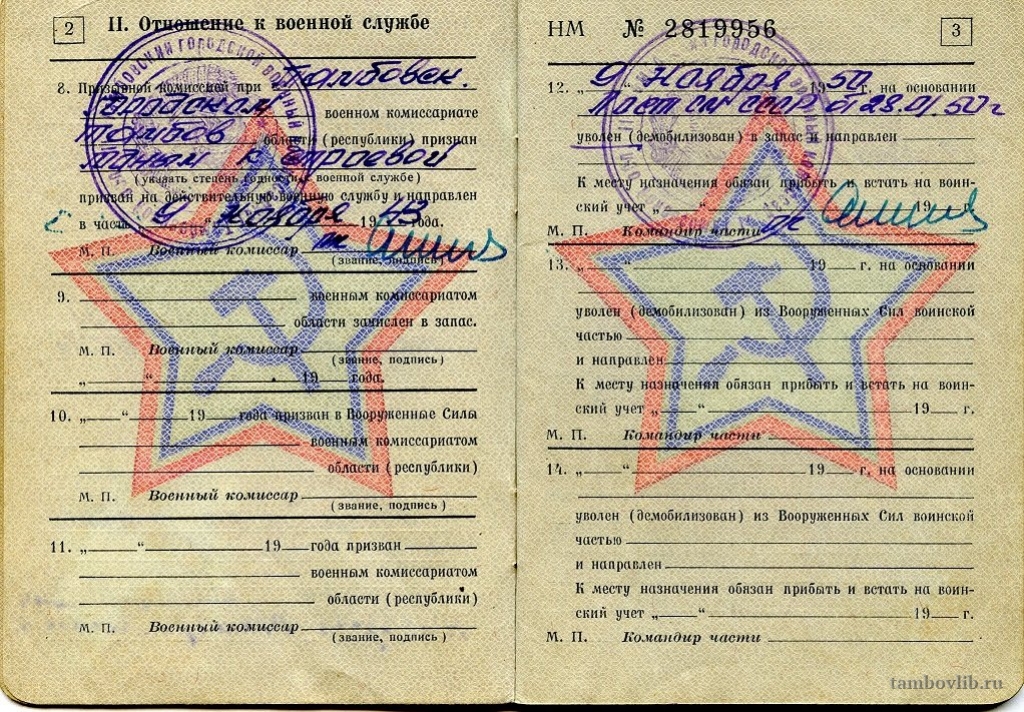 2
II. Отношение к военной службе
8. Призывной комиссией при Тамбовск.
Городском военном комиссариате
Тамбов области (республики) признан
годным к строевой
(указать степень годности к военной службе)
призван на действительную военную службу и направлен
в часть „ 9 “ Ноября 1943 года.
М. П. Военный комиссар
(звание, подпись)
9. военным комиссариатом
области зачислен в запас.
М. П. Военный комиссар
(звание, подпись)
„ “ 19 года.
10. „ “ 19 года призван в Вооруженные Силы
военным комиссариатом
области (республики)
М. П. Военный комиссар
(звание, подпись)
11. „ “ 19 года призван
военным комиссариатом
области (республики)
М. П. Военный комиссар
(звание, подпись)
НМ № 2819956
3
12. „ 9 “ Ноября 1950 г. на основании
СССР от 28.01.50 г
уволен (демобилизован) в запас и направлен
К месту назначения обязан прибыть и встать на воин-
ский учет „ “ 19 г.
М. П. Командир части
13. „ “ 19 г. на основании
уволен (демобилизован) из Вооруженных Сил воинской
частью
и направлен
К месту назначения обязан прибыть и встать на воин-
ский учет „ “ 19 г.
М. П. Командир части
14. „ “ 19 г. на основании
уволен (демобилизован) из Вооруженных Сил воинской
частью
и направлен
К месту назначения обязан прибыть и встать на воин-
ский учет „ “ 19 г.
М. П. Командир части
tambovlib.ru